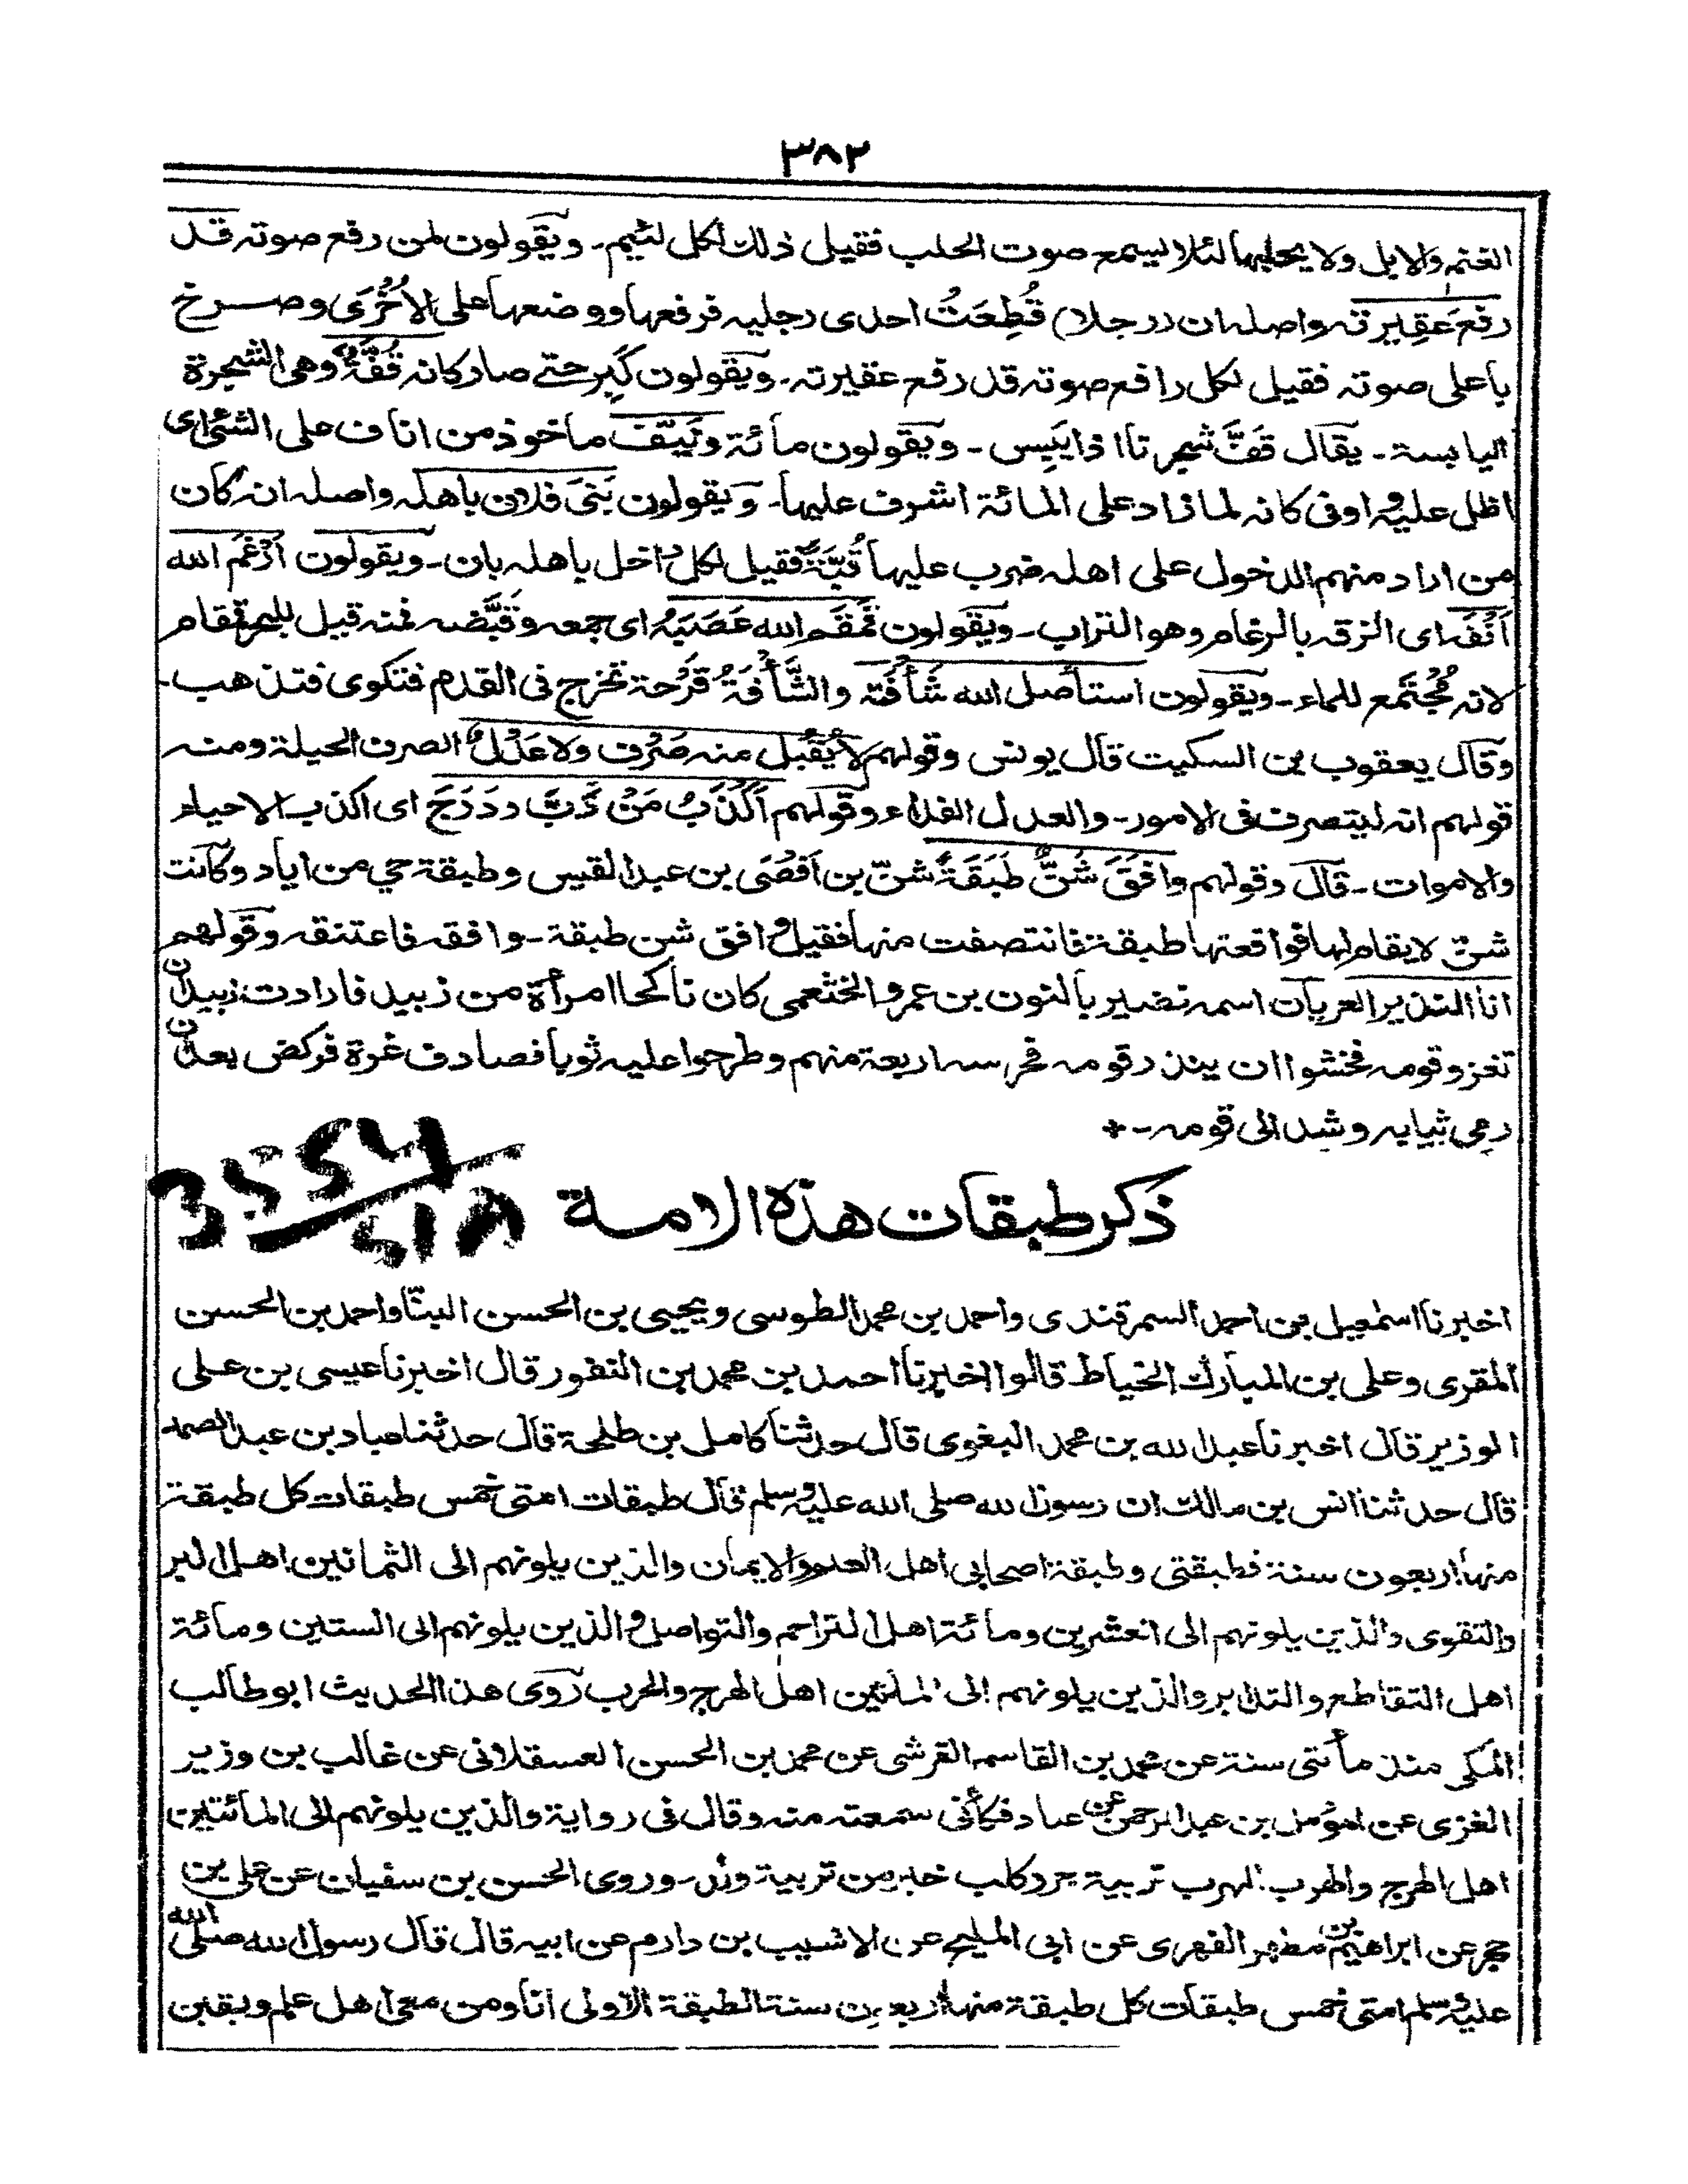 ٣٨٢
الغنم والابل ولا يحلبها لئلا يسمع صوت الحلب فقيل ذلك لكل لئيم ـ ويقولون لمن رفع صوته قد
رفع عَقِيرته واصله ان (رجلا) قُطِعَتُ احدى رجليه فرفعها ووضعها على الاُخْرَى وصرخ
باعلى صوته فقيل لكل رافع صوته قد رفع عقيرته ـ ويقولون كَبِر حتے صار كانه قُفَّةٌ وهى الشجرة
اليابسة ـ يقال قَفَّ شجرتنا اذا يَبِس ـ ويقولون مائة ونَيِّف ماخوذ من اناف على الشئ اى
اظل عليه و اوفى كانه لما زاد على المائة اشرف عليها ـ ويقولون بَنىَ فلان باهله واصله انه كان
من اراد منهم الدخول على اهله ضرب عليها قُبَّةً فقيل لكل داخل باهله بان ـ ويقولون اَرْغَمَ الله
اَنْفَه اى الزقه بالرغام وهو التراب ـ ويقولون قمقم الله عَصَبَهُ اى جمعه وقَبَّضه فمنه قيل للبحر قمقام
لانه مُجْتَمع للماء ـ ويقولون استأصل الله شَأفَته والشَّأفَةُ قَرْحة تخرج فى القدم فتكوى فتذهب ـ
وقال يعقوب بن السكيت قال يونس وقولهم لا يُقْبل منه صَرْف ولا عَدْلٌ الصرف الحيلة ومنه
قولهم انه ليتصرف فى الامور ـ والعدل الفداء وقولهم اَكْذَبُ مَنْ دَبَّ ودَرَجَ اى اكذب الاحياء
والاموات ـ قال وقولهم وافَقَ شَنٌّ طَبَقَةً شنّ بن اَفْصَى بن عبد القيس وطبقة حي من اياد وكانت
شنّ لا يقام لها فواقعتها طبقة فانتصفت منها فقيل وافق شن طبقة ـ وافقه فاعتنقه وقولهم
انا النذير العريان اسمه نضير بالنون بن عمرو الخثعمى كان ناكحا امرأة من زبيد فارادت زبيد ان
تغزو قومه فخشوا ان ينذر قومه فحرسه اربعة منهم وطرحوا عليه ثوبا فصادف غرة فركض بعد ان
رمى ثيابه وشد الى قومه ـ +
ذكر طبقات هذه الامة
اخبرنا اسمٰعيل بن احمد السمرقندى واحمد بن محمد الطوسى ويحيى بن الحسن البنّا واحمد بن الحسن
المقرى وعلى بن المبارك الخياط قالوا اخبرنا احمد بن محمد بن النقور قال اخبرنا عيسى بن على
الوزير قال اخبرنا عبد الله بن محمد البغوى قال حدثنا كامل بن طلحة قال حدثنا عباد بن عبد الصمد
قال حدثنا انس بن مالك ان رسول الله صلى الله عليه وسلم قال طبقات امتى خمس طبقات كل طبقة
منها اربعون سنة فطبقتى وطبقة اصحابى اهل العلم والايمان والذين يلونهم الى الثمانين اهل البر
والتقوى والذين يلونهم الى العشرين ومائة اهل التراحم والتواصل والذين يلونهم الى الستين ومائة
اهل التقاطع والتدابر والذين يلونهم الى المائتين اهل الهرج والحرب روى هذا الحديث ابو طالب
المكى منذ مأتى سنة عن محمد بن القاسم القرشى عن محمد بن الحسن العسقلانى عن غالب بن وزير
الغزى عن المؤمل بن عبد الرحمن عن عباد فكأنى سمعته منه وقال فى رواية والذين يلونهم الى المائتين
اهل الهرج والهرب الهرب تربية جرو كلب خير من تربية ولد ـ وروى الحسن بن سفيان عن على بن
حجر عن ابراهيم بن مطهر الفهرى عن ابى المليح عن الاشيب بن دارم عن ابيه قال قال رسول الله صلى الله
عليه وسلم امتى خمس طبقات كل طبقة منها اربعين سنة الطبقة الاولى انا ومن معى اهل علم ويقين